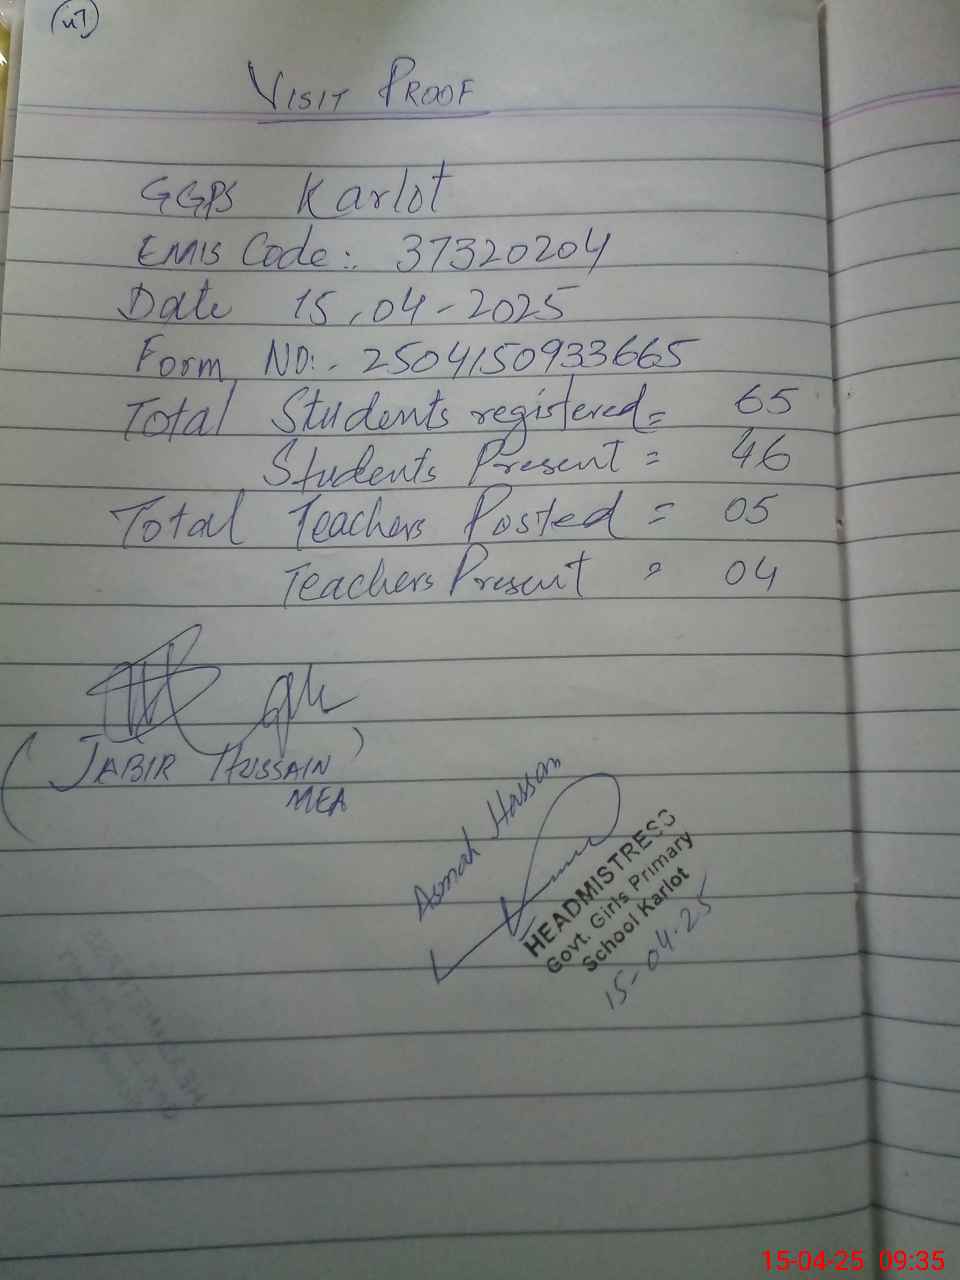 47
VISIT PROOF
GGPS Karlot
EMIS Code:. 37320204
Date 15.04-2025
Form NO:. 2504150933665
Total Students registered = 65
Students Present = 46
Total Teachers Posted = 05
Teachers Present = 04
(JABIR HUSSAIN)
MEA
Asmah Hassan
HEADMISTRESS
Govt. Girls Primary
School Karlot
15-04-25
15-04-25 09:35